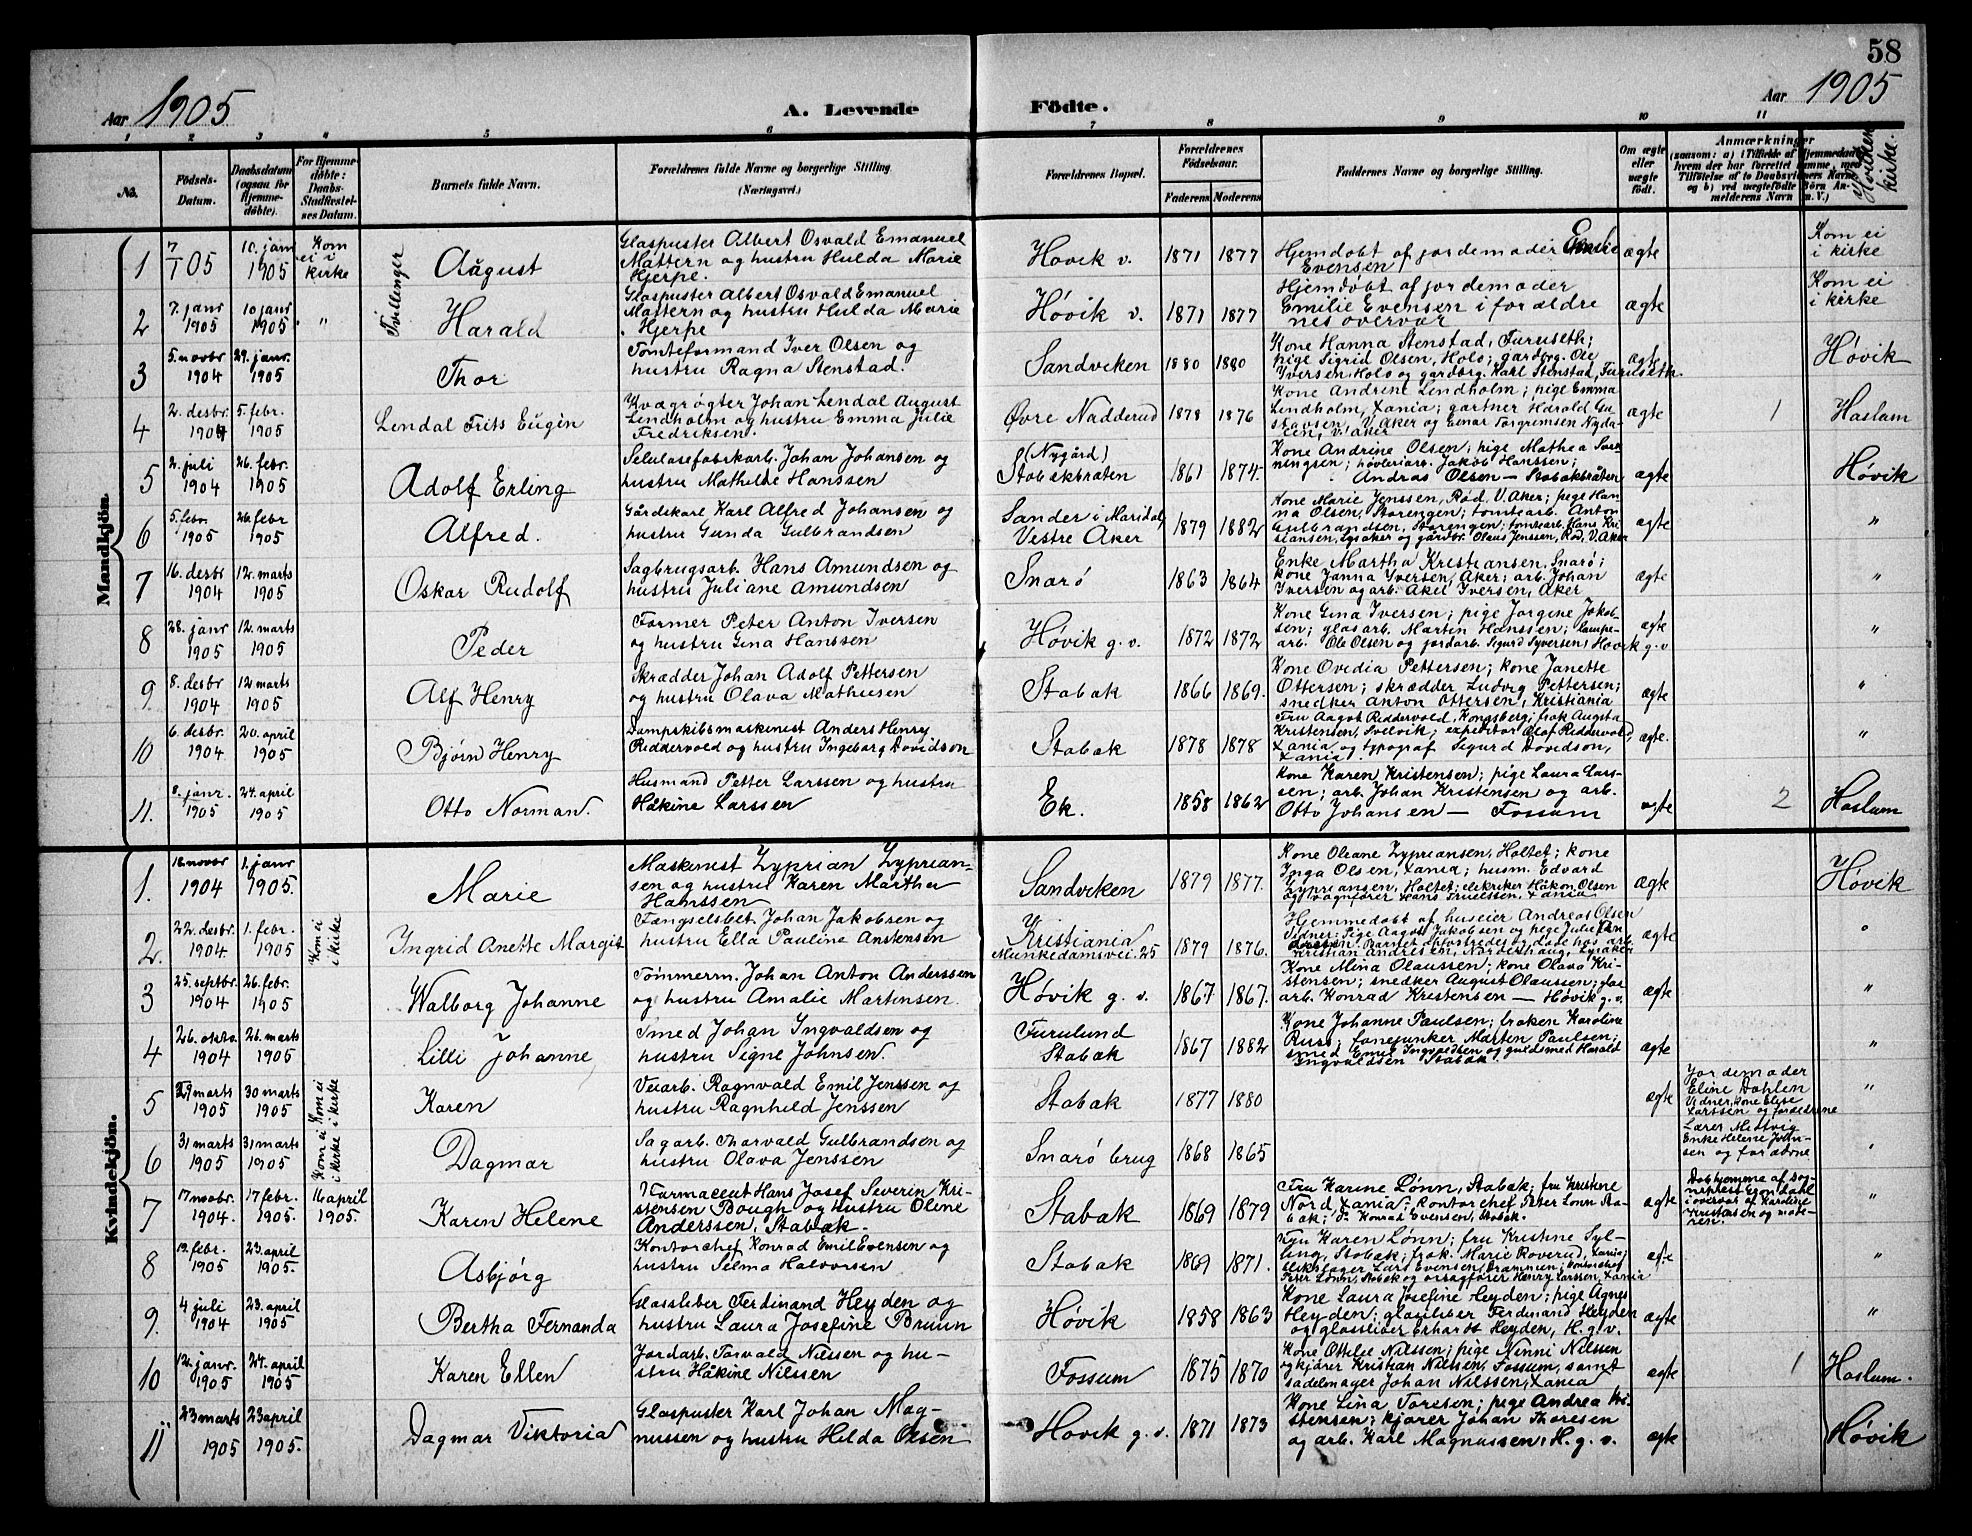 58
Aar 1905
A. Levende Födte.
Aar 1905
1 2 3 4 5 6 7 8 9 10 11
No.
Födsels-Datum.
Daabsdatum (ogsaa for Hjemmedöbte).
For Hjemmedöbte: Daabs-Stadfæstelses Datum.
Barnets fulde Navn.
Forældrenes fulde Navne og borgerlige Stilling (Næringsvei.)
Forældrenes Bopæl.
Forældrenes Födselsaar.
Faderens Moderens
Faddernes Navne og borgerlige Stilling.
Om ægte eller uægte födt.
Anmærkninger
kirke.
Mandkjön.
1 7/1 05 10. janr 1905 Kom ei i kirke
Tvillinger
August
Glaspuster Albert Osvald Emanuel
Mattern og hustru Hulda Marie
Hjerpe.
Høvik v. 1871 1877
Hjemdøbt af jordemoder Emilie
Evensen
ægte
Kom ei
i kirke
2 7. janr 1905 10 janr 1905 "
Harald
Glaspuster Albert Osvald Emanuel
Mattern og hustru Hulda Marie
Hjerpe
Høvik v. 1871 1877
Hjemdøbt af jordemoder
Emilie Evensen i forældre
nes overvær
ægte
Kom ei
i kirke
3 5. novbr 1904 29. janr. 1905
Thor
Tomteformand Iver Olsen og
hustru Ragna Stenstad.
Sandviken 1880 1880
Kone Hanna Stenstad, Furuseth;
pige Sigrid Olsen, Holo; gardbrg. Ole
Iversen Holo og gardbrg. Karl Stenstad, Furuseth.
ægte
Høvik
4 2. desbr. 1904 5. febr. 1905
Lendal Frits Eugen
Kvægrøgter Johan Lendal August
Lindholm og hustru Emma Julie
Fredriksen.
Øvre Nadderud 1878 1876
Kone Andrine Lindholm; pige Emma
Lindholm, Xania; gartner Harald Gu
stavsen, V. Aker og Einar Torgrimsen Nyda
len, V. Aker
ægte
1 Haslum
5 2. juli 1904 26. febr. 1905
Adolf Erling
Selulosefabrikarb. Johan Johansen og
hustru Mathilde Hanssen
(Nygård)
Stabakbråten 1861 1874.
Kone Andrine Olsen; pige Mathea
høvleriarb. Jakob Hanssen;
Andras Olsen — Stabakbråten
ægte
Høvik
6 5. febr. 1905 26. febr 1905
Alfred.
Gårdskarl Karl Alfred Johansen og
hustru Gunda Gulbrandsen
Sander i Maridal,
Vestre Aker 1879 1882
Kone Marie Jenssen, Rød, V. Aker; pige Han
na Olsen, Storengen; tomtearb. Anton
Gulbrandsen, Storengen; tomtearb. Hans Kri
stiansen, Lysaker og gardbr. Olaus Jenssen, Rød, V. Aker
ægte
"
7 16. desbr 1904 12. marts 1905
Oskar Rudolf
Sagbrugsarb. Hans Amundsen og
hustru Juliane Amundsen
Snarø 1863 1864
Enke Martha Kristiansen, Snarø;
kone Janna Iversen, Aker; arb. Johan
Iversen og arb. Aksel Iversen, Aker
ægte
"
8 28. janr 1905 12. marts 1905
Peder
Former Peter Anton Iversen
og hustru Gina Hanssen
Høvik g. v. 1872 1872
Kone Gina Iversen; pige Jorgine Jakob-
sen; glasarb. Martin Hanssen; lampe-
arb. Ole Olsen og jordarb. Sigurd Syversen, Høvik g. v.
ægte
"
9 8. desbr 1904 12 marts 1905
Alf Henry
Skrædder Johan Adolf Pettersen
og hustru Olava Mathiesen
Stabak 1866 1869.
Kone Ovidia Pettersen; kone Janette
Ottersen; skrædder Ludvig Pettersen;
snedker Anton Ottersen, Kristiania
ægte
"
10 6. desbr. 1904 20. april 1905
Bjørn Henry
Dampskibsmaskinist Anders Henry
Riddervold og hustru Ingeborg Davidson
Stabak 1878 1878
Fru Aagot Riddervold, Kongsberg; frøk Augsta
Kristensen, Svelvik; expeditør Olaf Riddervold,
Xania og typograf Sigurd Davidson,
Xania.
ægte.
"
11. 8. janr. 1905 24. april 1905
Otto Norman.
Husmand Petter Larssen og hustru
Håkine Larssen
Ek. 1858 1862
Kone Karen Kristensen; pige Laura Lars-
sen; arb. Johan Kristensen og arb.
Otto Johansen — Fossum
ægte
2 Haslum
Kvindekjön.
1. 18. novbr 1904 1. janr 1905.
Marie
Maskinist Zyprian Zyprian-
sen og hustru Karen Martha
Hanssen
Sandviken 1879 1877.
Kone Oleane Zypriansen, Holtet; kone
Inga Olsen, Xania; husm. Edvard
Zypriansen, Holtet; elektriker Håkon Olsen
og vognfører Hans Truelssen, Xania
ægte
Høvik
2. 22. desbr. 1904 1. febr. 1905 Kom ei i kirke
Ingrid Anette Margit
Fængselsbet. Johan Jakobsen og
hustru Ella Pauline Anstensen
Kristiania
Munkedamsvei. 25 1879 1876.
Hjemmedøbt af huseier Andreas Olsen
Vidner: Pige Aagot Jakobsen og pige Julie
Barnet opfostredes og døde hos arb.
Kristian Andresen, Norderhaug, Lysaker
ægte
"
3 25. septbr. 1904 26. febr. 1905
Walborg Johanne
Tømmerm. Johan Anton Anderssen
og hustru Amalie Martensen.
Høvik g. v. 1867 1867.
Kone Mina Olaussen; kone Olava Kri-
stensen; snedker August Olaussen; glas
arb. Konrad Kristensen — Høvik g. v.
ægte
"
4 26. oktb. 1904 26. marts 1905
Lilli Johanne
Smed Johan Ingvaldsen og
hustru Signe Johnsen.
Furulund
Stabak 1867 1882
Kone Johanne Paulsen; frøken Karoline
Russ; fanejunker Marten Paulsen;
smed Emil Ingvaldsen og guldsmed Harald
Ingvaldsen Stabak
ægte
"
5 29 marts 1905 30 marts 1905 Kom ei i kirke
Karen
Veiarb. Ragnvald Emil Jenssen og
hustru Ragnhild Jenssen
Stabak 1877 1880
ægte
Jordemoder
Eline Dahlen
Vidner, kone Elise
Larssen og forældrene
"
6 31 marts 1905 31 marts 1905 Kom ei i kirke
Dagmar
Sagarb. Thorvald Gulbrandsen og
hustru Olava Jenssen
Snarø brug 1868 1865
Lærer
Enke Helene John-
sen og forældrne
"
7 17 novbr. 1904. 17 febr. 1905. 16 april 1905.
Karen Helene
Farmaceut Hans Josef Severin Kri-
stensen Bough og hustru Oline
Anderssen, Stabæk.
Stabak 1869 1879
Fru Karine Lønn, Stabak; fru Kristine
Nord Xania; kontorchef Peter Lønn Sta-
bak; Konrad Evensen, Stabak.
ægte
Døbt hjemme af Sog-
neprest Egon Dahl
i overvær af Karoline
Kristensen og mode-
ren.
"
8 19. febr. 1905 23. april 1905.
Asbjørg
Kontorchef Konrad Emil Evensen og
hustru Selma Halvorsen
Stabak 1869 1871.
Fru Karen Lønn; fru Kristine Syl-
ling, Stabak; frøk. Marie Roverud, Xania;
Lars Evensen, Drammen; kontorchef
Peter Lønn, Stabak og Henry Larssen, Xania
ægte
"
9. 4 juli 1904 23. april 1905
Bertha Fernanda
Glassliber Ferdinand Heyden og
hustru Laura Josefine Bruun
Høvik 1858 1863
Kone Laura Josefine Heyden; pige Agnes
Heyden; glasliber Ferdinand Heyden
og glassliber Erhardt Heyden, H. g. v.
ægte
"
10 12. janr. 1905 24. april 1905
Karen Ellen
Jordarb. Torvald Nilssen og hu-
stru Håkine Nilssen
Fossum 1875 1870
Kone Ottilie Nilssen; pige Ninni Nilssen
og kjører Kristian Nilssen, Fossum, samt
sadelmager Johan Nilssen, Xania
ægte
1 Haslum.
11 23 marts 1905 23 april 1905.
Dagmar Viktoria
Glaspuster Karl Johan Mag-
nussen og hustru Hilda Olsen
Høvik g. v. 1871 1873
Kone Lina Toresen; pige Andrea Kri-
stensen; kjører Johan Thoresen
og arb. Karl Magnussen, H. g. v.
ægte
Høvik